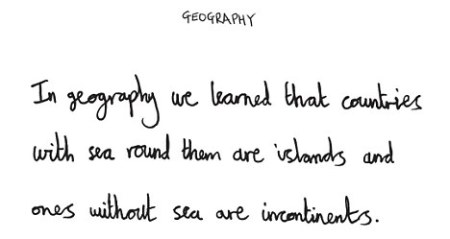 GEOGRAPHY
In geography we learned that countries
with sea round them are islands and
ones without sea are incontinents.